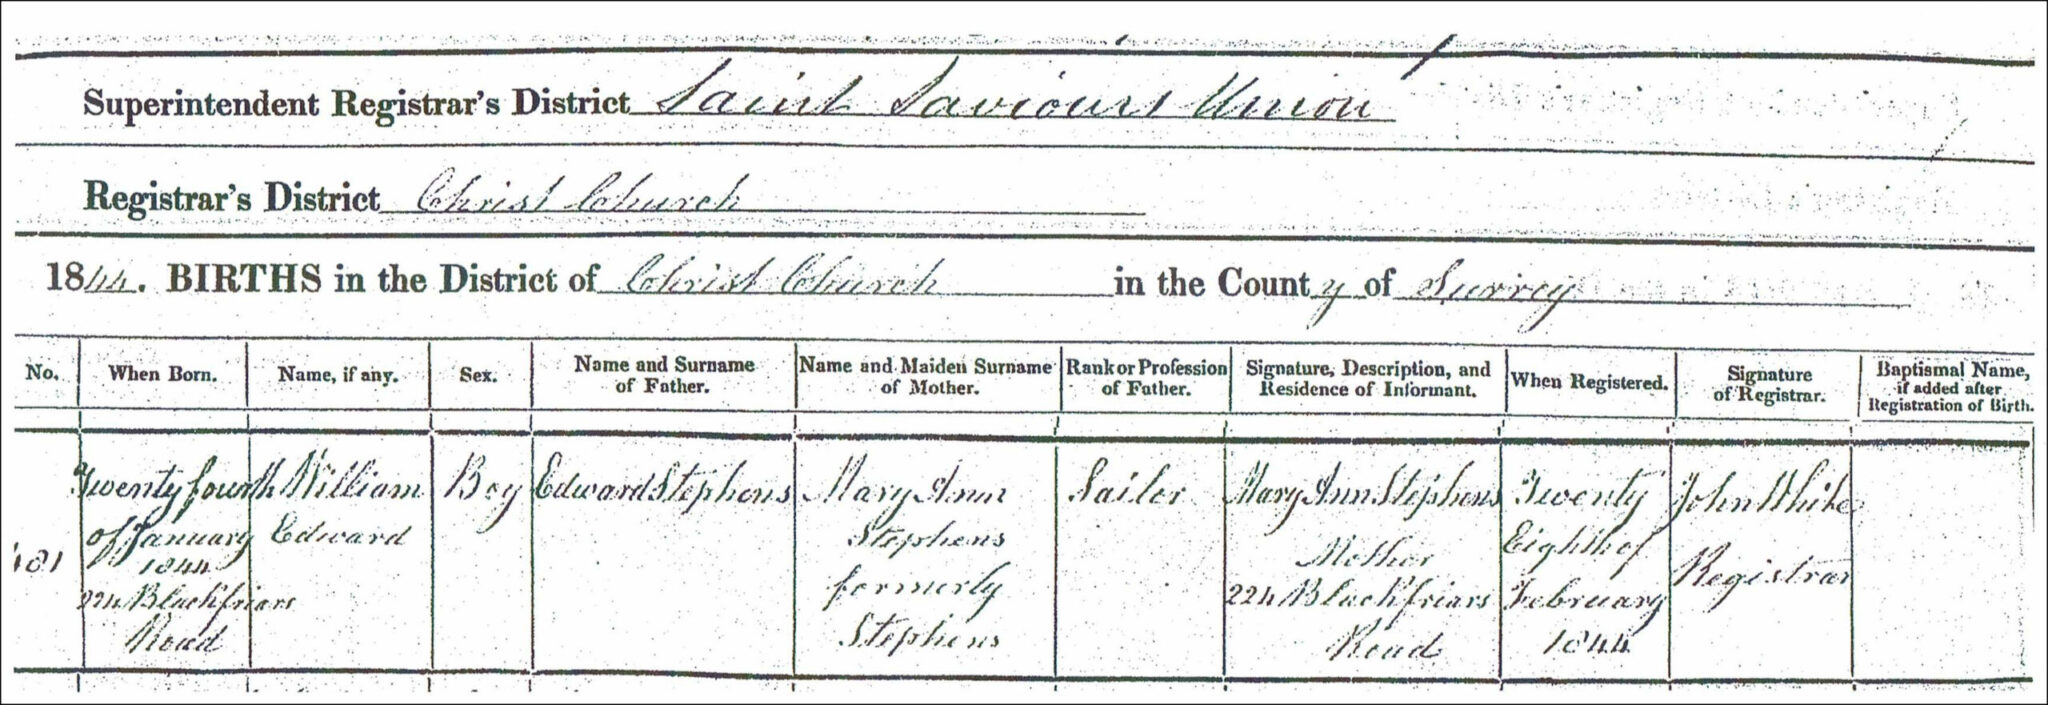 Superintendent Registrar's District Saint Saviours Union
Registrar's District Christ Church
1844. BIRTHS in the District of Christ Church in the County of Surrey
No.
When Born.
Name, if any.
Sex.
Name and Surname
of Father.
Name and Maiden Surname
of Mother.
Rank or Profession
of Father.
Signature, Description, and
Residence of Informant.
When Registered.
Signature
of Registrar.
Baptismal Name,
if added after
Registration of Birth.
481
Twenty fourth
of January
1844
224 Blackfriars
Road
William
Edward
Boy
Edward Stephens
Mary Ann
Stephens
formerly
Stephens
Sailor
Mary Ann Stephens
Mother
224 Blackfriars
Road
Twenty
Eighth of
February
1844
John White
Registrar